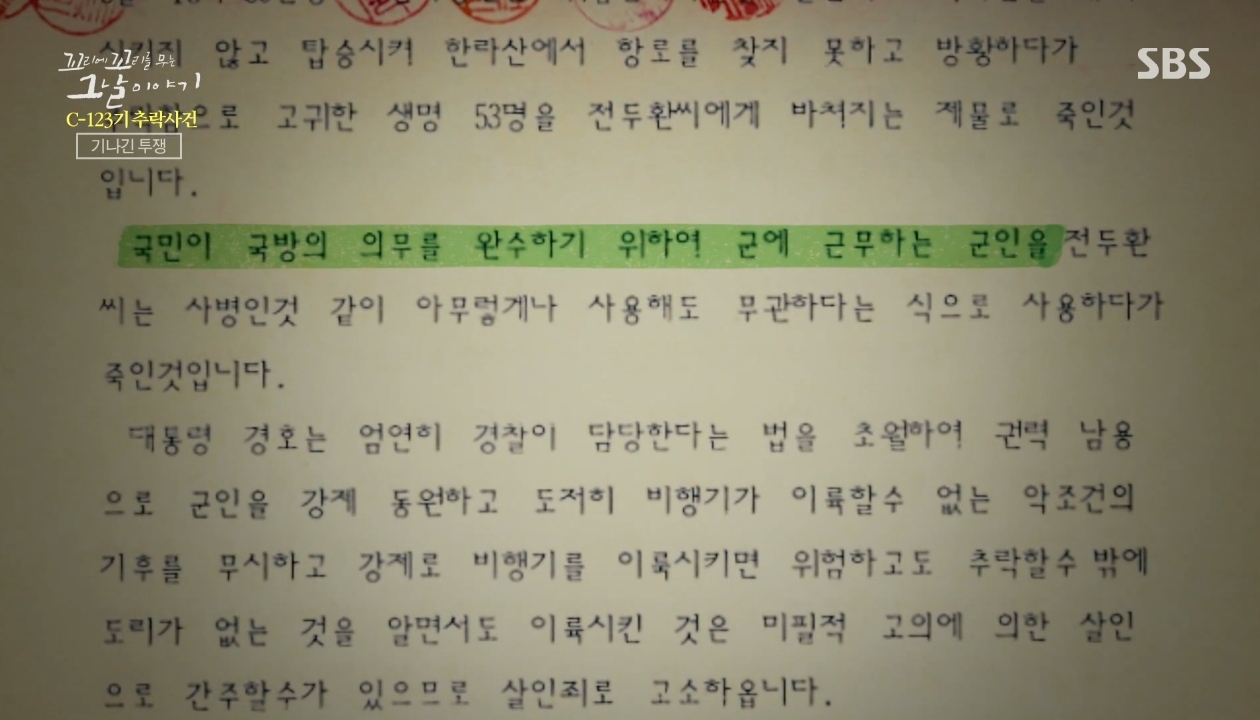 않고 탑승시켜 한라산에서 항로를 찾지 못하고 방황하다가
SBS
꼬리에 꼬리를 무는
그날 이야기
C-123기 추락사건
으로 고귀한 생명 53명을 전두환씨에게 바쳐지는 제물로 죽인것
기나긴 투쟁
입니다.
국민이 국방의 의무를 완수하기 위하여 군에 근무하는 군인을 전두환
씨는 사병인것 같이 아무렇게나 사용해도 무관하다는 식으로 사용하다가
죽인것입니다.
대통령 경호는 엄연히 경찰이 담당한다는 법을 초월하여 권력 남용
으로 군인을 강제 동원하고 도저히 비행기가 이륙할수 없는 악조건의
기후를 무시하고 강제로 비행기를 이룩시키면 위험하고도 추락할수밖에
도리가 없는 것을 알면서도 이륙시킨 것은 미필적 고의에 의한 살인
으로 간주할수가 있으므로 살인죄로 고소하옵니다.